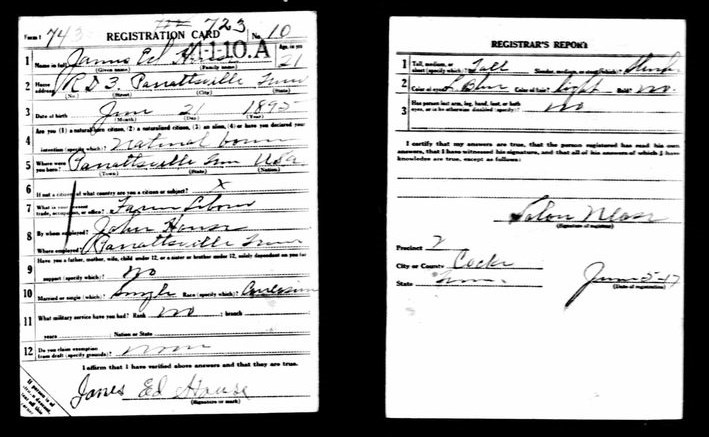 743 723
Form 1 REGISTRATION CARD No. 10
1-1-10.A
1 Name in full James Ed House Age, in yrs 21
(Given name) (Family name)
2 Home address R D 3 Parrottsville Tenn
(No.) (Street) (City) (State)
3 Date of birth June 21 1895
(Month) (Day) (Year)
Are you (1) a natural-born citizen, (2) a naturalized citizen, (3) an alien, (4) or have you declared your
4 intention (specify which)? Natural born
5 Where were you born? Parrottsville Tenn USA
(Town) (State) (Nation)
6 If not a citizen, of what country are you a citizen or subject? X
7 What is your present trade, occupation, or office? Farm Labour
8 By whom employed? John House
Where employed? Parrottsville Tenn
9 Have you a father, mother, wife, child under 12, or a sister or brother under 12, solely dependent on you for
support (specify which)? No
10 Married or single (which)? Single Race (specify which)? Caucasian
11 What military service have you had? Rank No ; branch
years Nation or State
12 Do you claim exemption from draft (specify grounds)? None
I affirm that I have verified above answers and that they are true.
James Ed House
(Signature or mark)
REGISTRAR'S REPORT
1 Tall, medium, or short (specify which)? Tall Slender, medium, or stout (which)? Slender
2 Color of eyes? L Blue Color of hair? Light Bald? No.
3 Has person lost arm, leg, hand, foot, or both eyes, or is he otherwise disabled (specify)? No
I certify that my answers are true, that the person registered has read his own
answers, that I have witnessed his signature, and that all of his answers of which I have
knowledge are true, except as follows:
(Signature of registrar)
Precinct 2
City or County Cocke
State Tenn. June 5-17
(Date of registration)